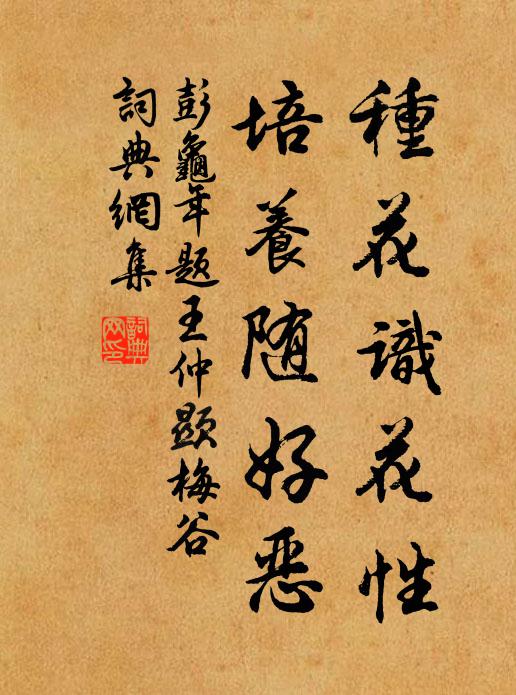 種花識花性
培養随好恶
彭龜年题王仲顯梅谷
詞典網集
詞典網印